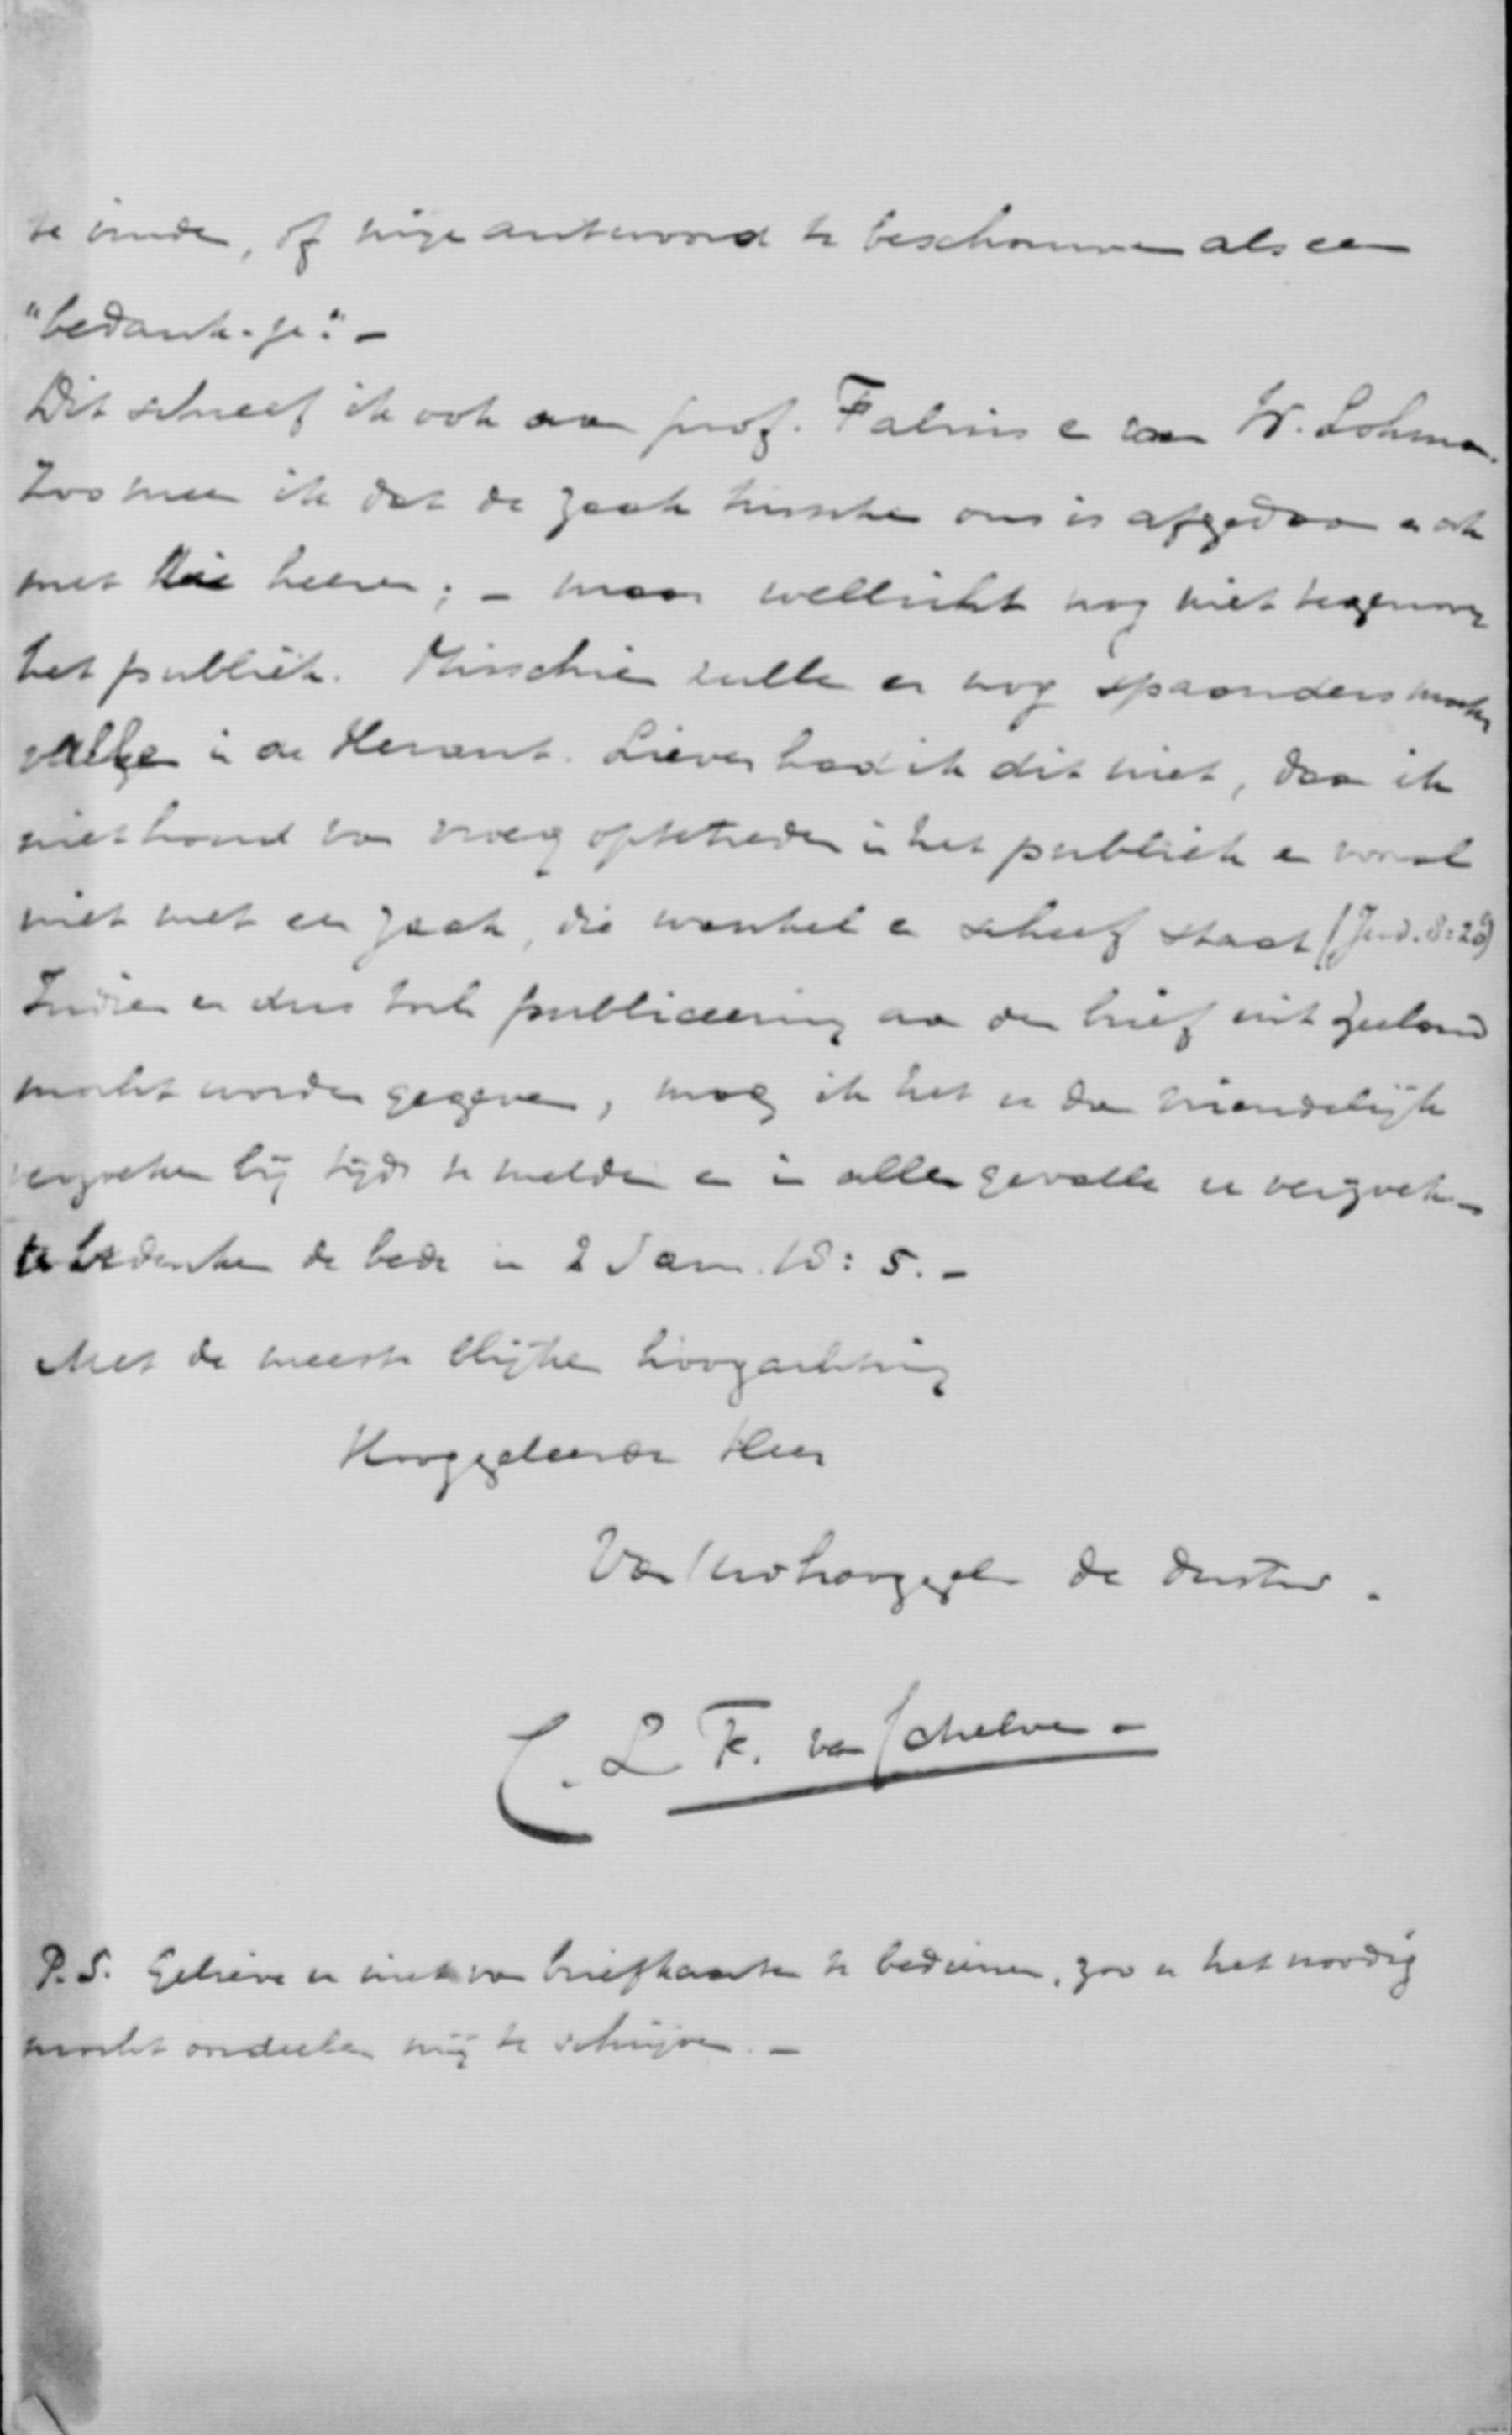 te vinden, of mijn antwoord te beschouwen als een
"bedank-je". –
Dit schreef ik ook aan prof. Fabius en aan W. Lohman.
Zoo meen ik dat de zaak tusschen ons is afgedaan en ook
met die heeren; – maar wellicht nog niet tegenover
het publiek. Misschien zullen er nog spaanders moeten
vallen in de Heraut. Liever had ik dit niet, daar ik
niet houd van vroeg optetreden in het publiek en vooral
niet met een zaak, die wankel en scheef staat (Jud. 8:20)
Indien er dus toch publiceering aan den brief uit Zeeland
mocht worden gegeven, mag ik het u dan vriendelijk
verzoeken bij tijds te melden en in allen gevalle u verzoeken
te bedenken de bede in 2 Sam. 18: 5. –
Met de meeste blijken hoogachting
Hooggeleerde Heer
Van Uw hooggel. de dienstw.
C. L. F. van Schelven –
P.S. Gelieve u niet van briefkaarten te bedienen, zoo u het noodig
mocht oordeelen mij te schrijven. –